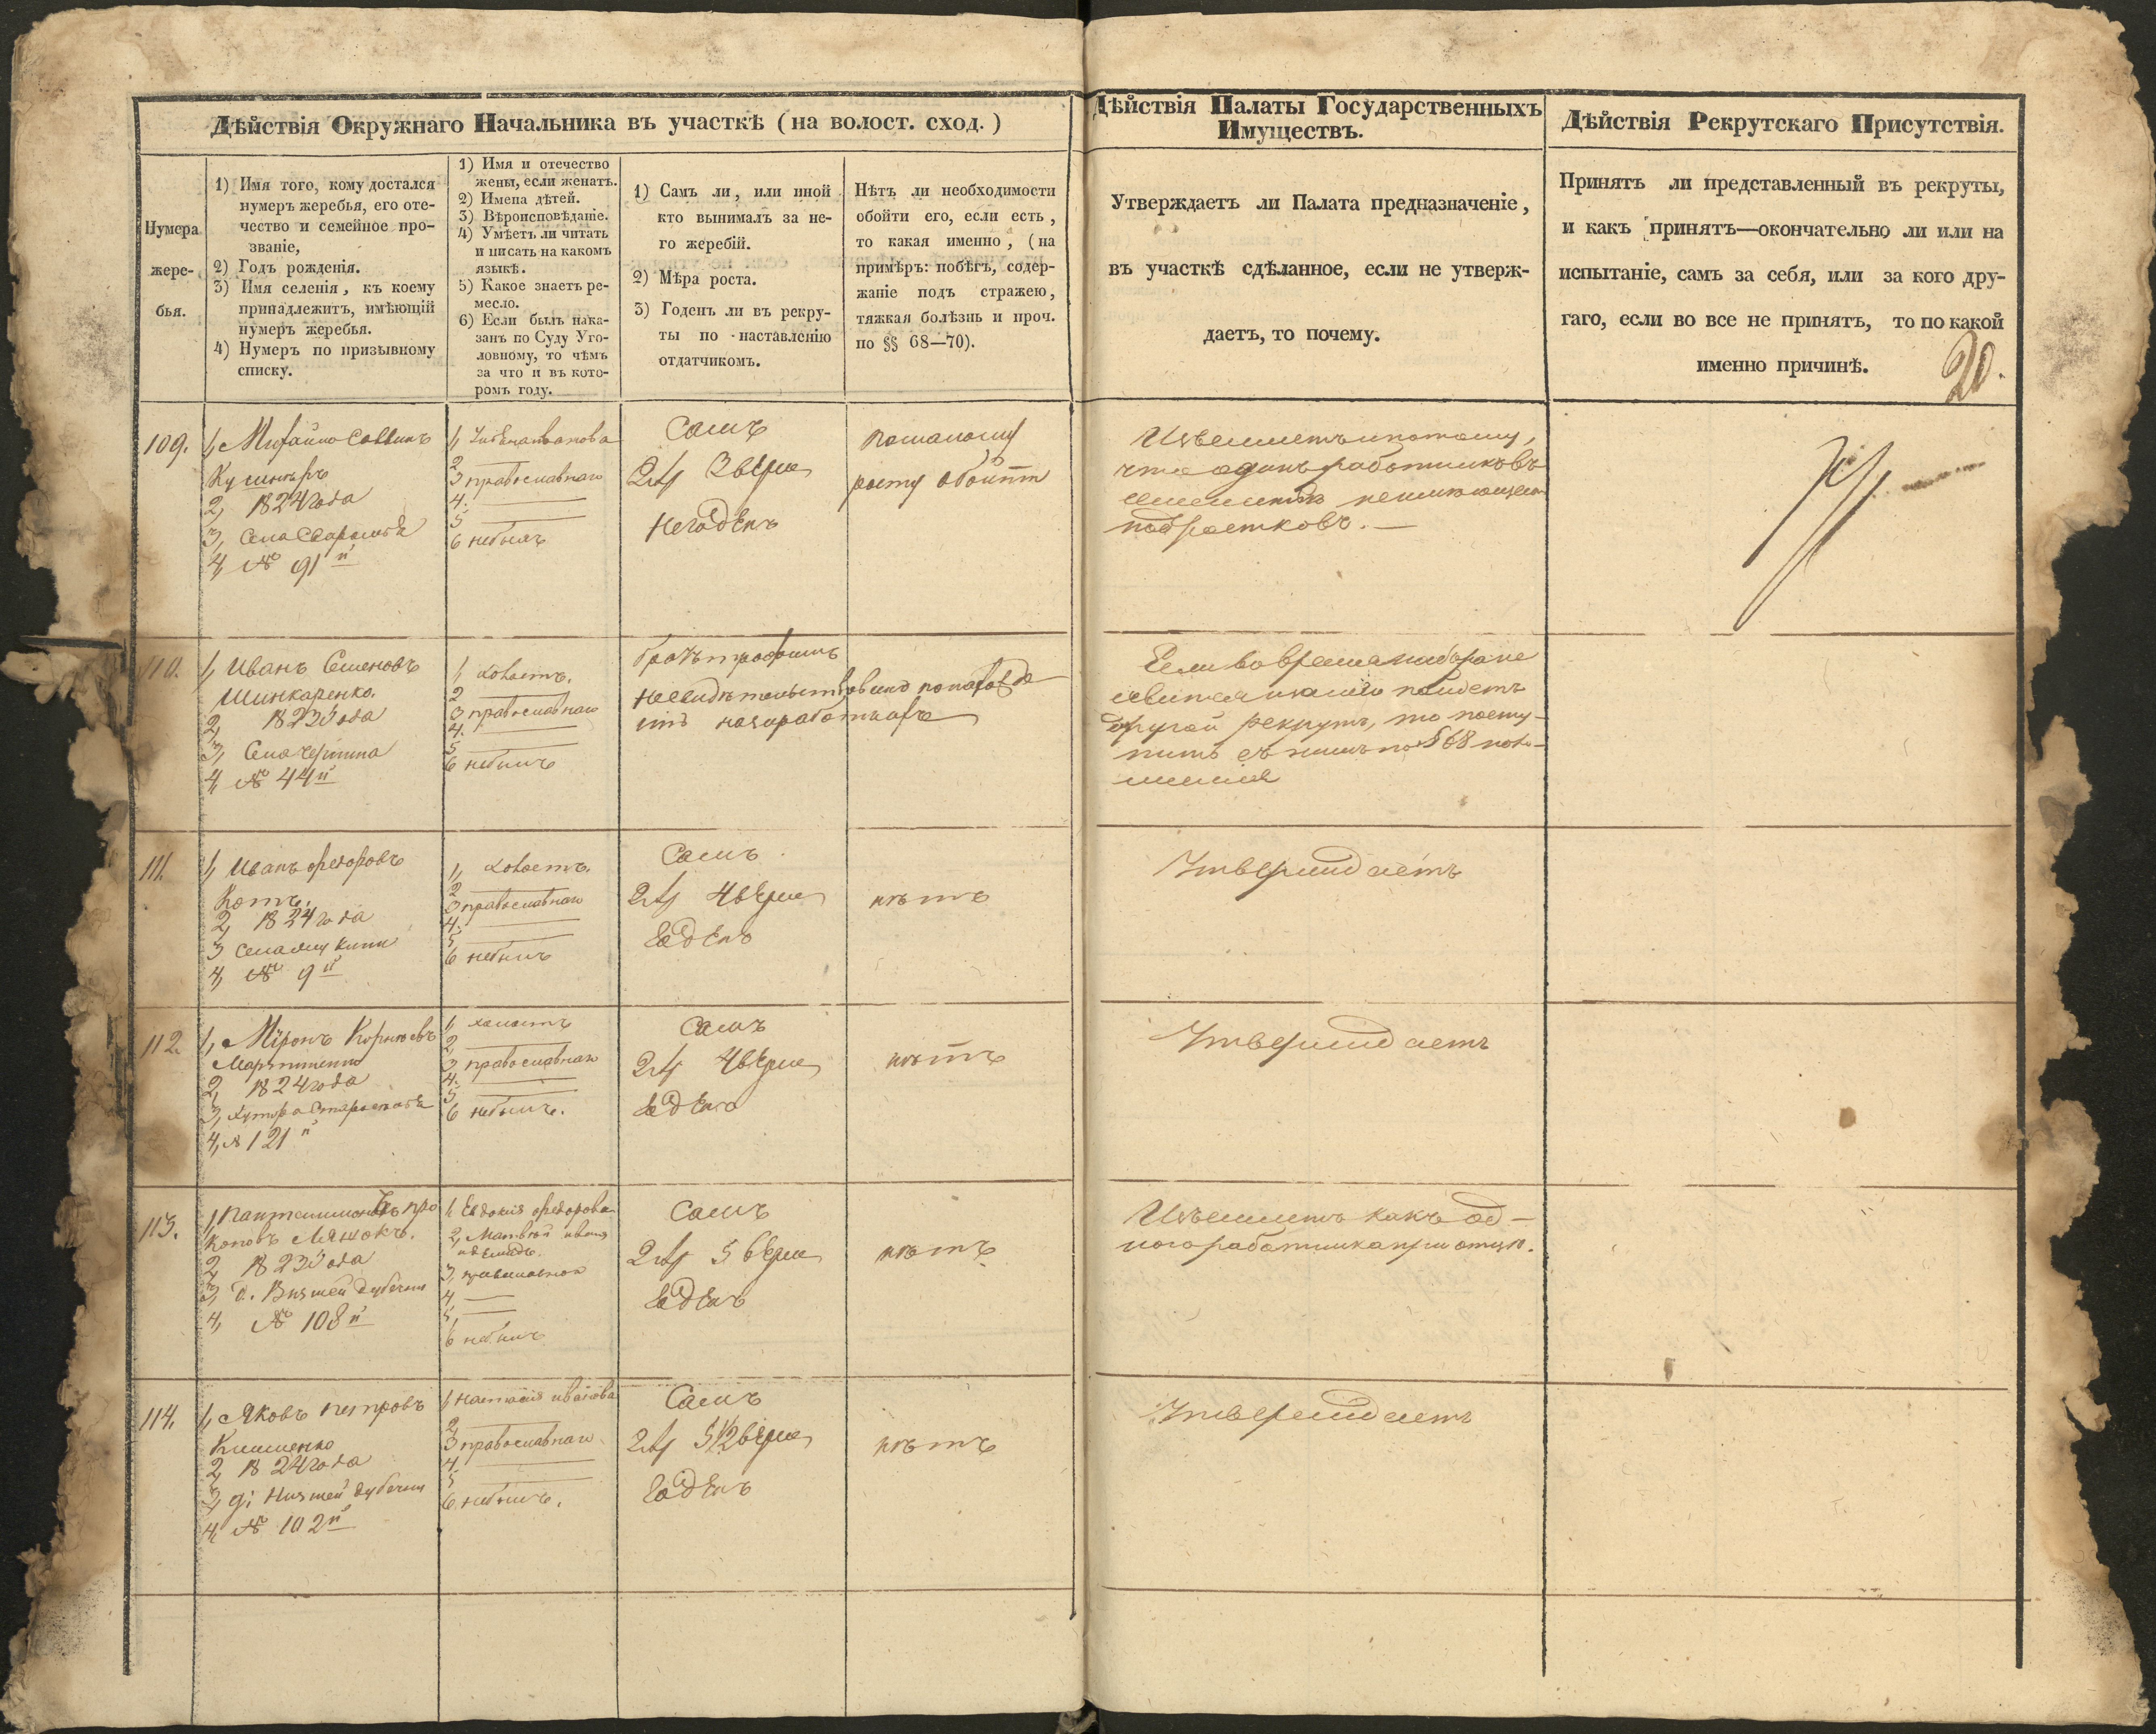 Дѣйствія Окружнаго Начальника въ участкѣ (на волост. сход.)
Нумера
жере-
бья.
1) Имя того, кому достался
нумеръ жеребья, его оте-
чество и семейное про-
званіе,
2) Годъ рожденія.
3) Имя селенія, къ коему
принадлежитъ, имѣющій
нумеръ жеребья.
4) Нумеръ по призывному
списку.
1) Имя и отечество
жены, если женатъ.
2) Имена дѣтей.
3) Вѣроисповѣданіе.
4) Умѣетъ ли читать
и писать на какомъ
языкѣ.
5) Какое знаетъ ре-
месло.
6) Если былъ нака-
занъ по Суду Уго-
ловному, то чѣмъ
за что и въ кото-
ромъ году.
1) Самъ ли, или иной
кто вынималъ за не-
го жеребій.
2) Мѣра роста.
3) Годенъ ли въ рекру-
ты по наставленію
отдатчикомъ.
Нѣтъ ли необходимости
обойти его, если есть,
то какая именно, (на
примѣръ: побѣгъ, содер-
жаніе подъ стражею,
тяжкая болѣзнь и проч.
по §§ 68—70).
Дѣйствія Палаты Государственныхъ
Имуществъ.
Утверждаетъ ли Палата предназначеніе,
въ участкѣ сдѣланное, если не утверж-
даетъ, то почему.
Дѣйствія Рекрутскаго Присутствія.
Принятъ ли представленный въ рекруты,
и какъ принятъ—окончательно ли или на
испытаніе, самъ за себя, или за кого дру-
гаго, если во все не принятъ, то по какой
именно причинѣ.
20.
109.
1, Михайло Саввинъ
Кушниръ
2, 1824 года
3, Села
4, № 91й
1, Ивановна
2
3 православнаго
4.
5
6 небылъ
Самъ
2 ар 2 верш
Негоденъ
помалому
росту обойти
потому,
что одинъ работникъ въ
семействѣ
подростковъ.—
110.
1, Иванъ Семеновъ
Шинкаренко.
2, 1823 года
3, Села
4, № 44й
1, холостъ.
2
3 православнаго
4.
5
6 небылъ
братъ трофимъ
несвидетельствованъ
на заработкахъ
Если во время набора не
явится и на него пойдетъ
другой рекрутъ, то посту-
пить съ нимъ по § 68 поло-
женія
111.
1, Иванъ Федоровъ
Котъ.
2, 1824 года
3 села
4, № 9й
1, холостъ.
2
3 православнаго
4.
5
6 небылъ
Самъ
2 ар 4 верш
годенъ
нѣтъ
Утверждаетъ
112.
1, Миронъ Корнѣевъ
2, 1824 года
3, хутора
4, № 121й
1, холостъ
2,
3 православнаго
4.
5
6 небылъ.
Самъ
2 ар 4 верш
годенъ
нѣтъ
Утверждаетъ
113.
1, Пантелимонъ Про
коповъ
2, 1823 года
3, д. Дубечни
4, № 108й
1, Евдокія Федорова
2, Матвѣй
3, православной
4
5,
6 небылъ
Самъ
2 ар 5 верш
годенъ
нѣтъ
какъ од-
ного работника при отцѣ.
114.
1, Яковъ Петровъ
2, 1824 года
3, д: Дубечни
4, № 102й
1, Настасія иванова
2,
3 православнаго
4.
5
6, небылъ.
Самъ
2 ар 5 1/2 верш
годенъ
нѣтъ
Утверждаетъ